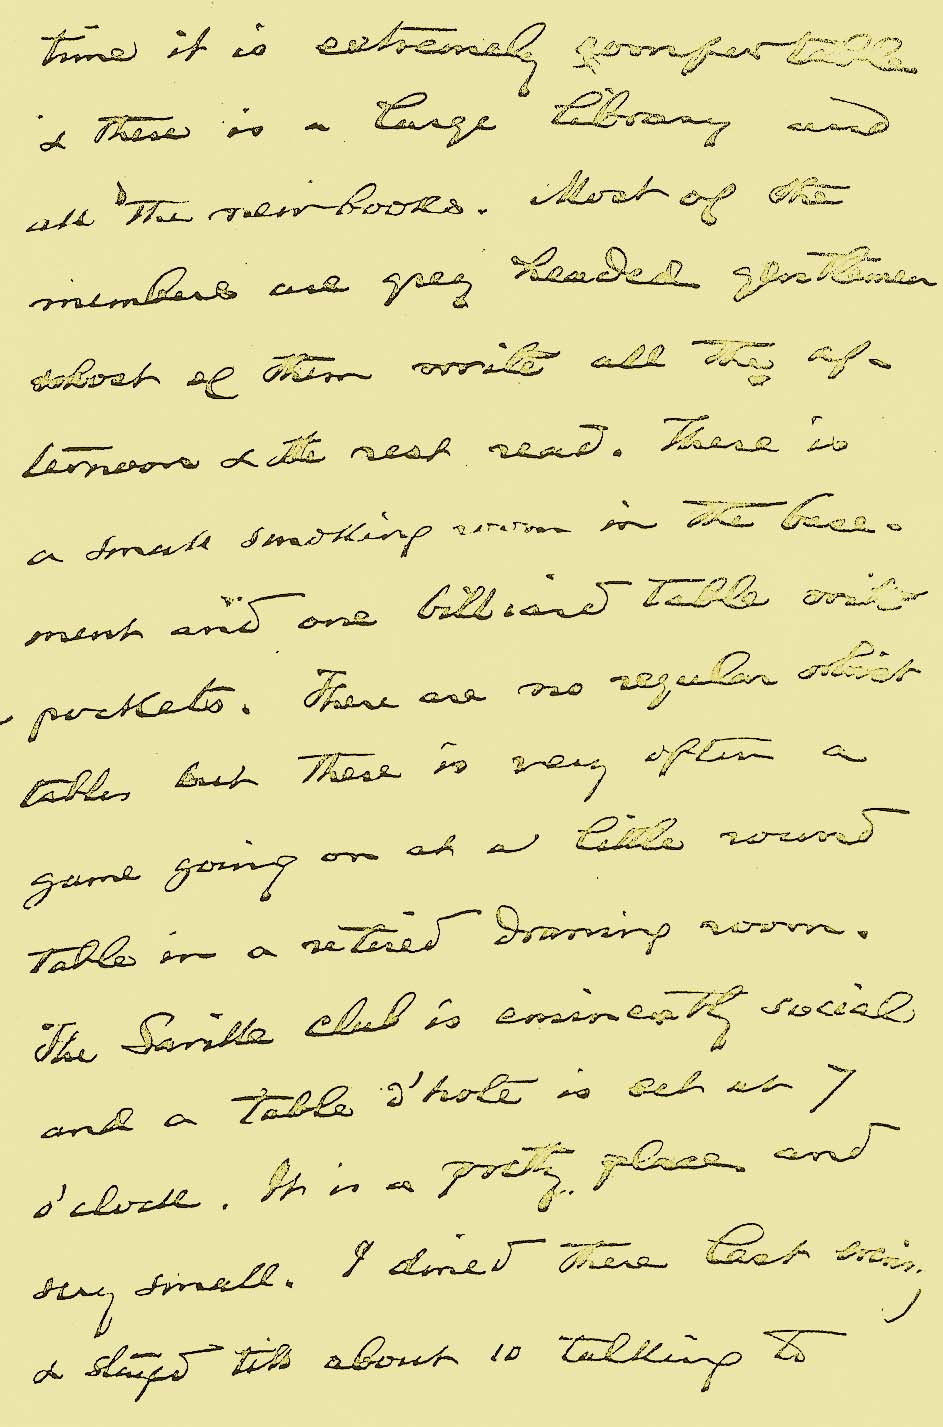 time it is extremely comfortable
& there is a large library and
all the new books. Most of the
members are grey headed gentlemen
Most of them write all the af-
ternoon & the rest read. There is
a small smoking room in the base-
ment and one billiard table with
pockets. There are no regular whist
tables but there is very often a
game going on at a little round
table in a retired drawing room.
The Saville club is eminently social
and a table d'hote is set at 7
o'clock. It is a pretty place and
very small. I dined there last
& stayed till about 10 talking to